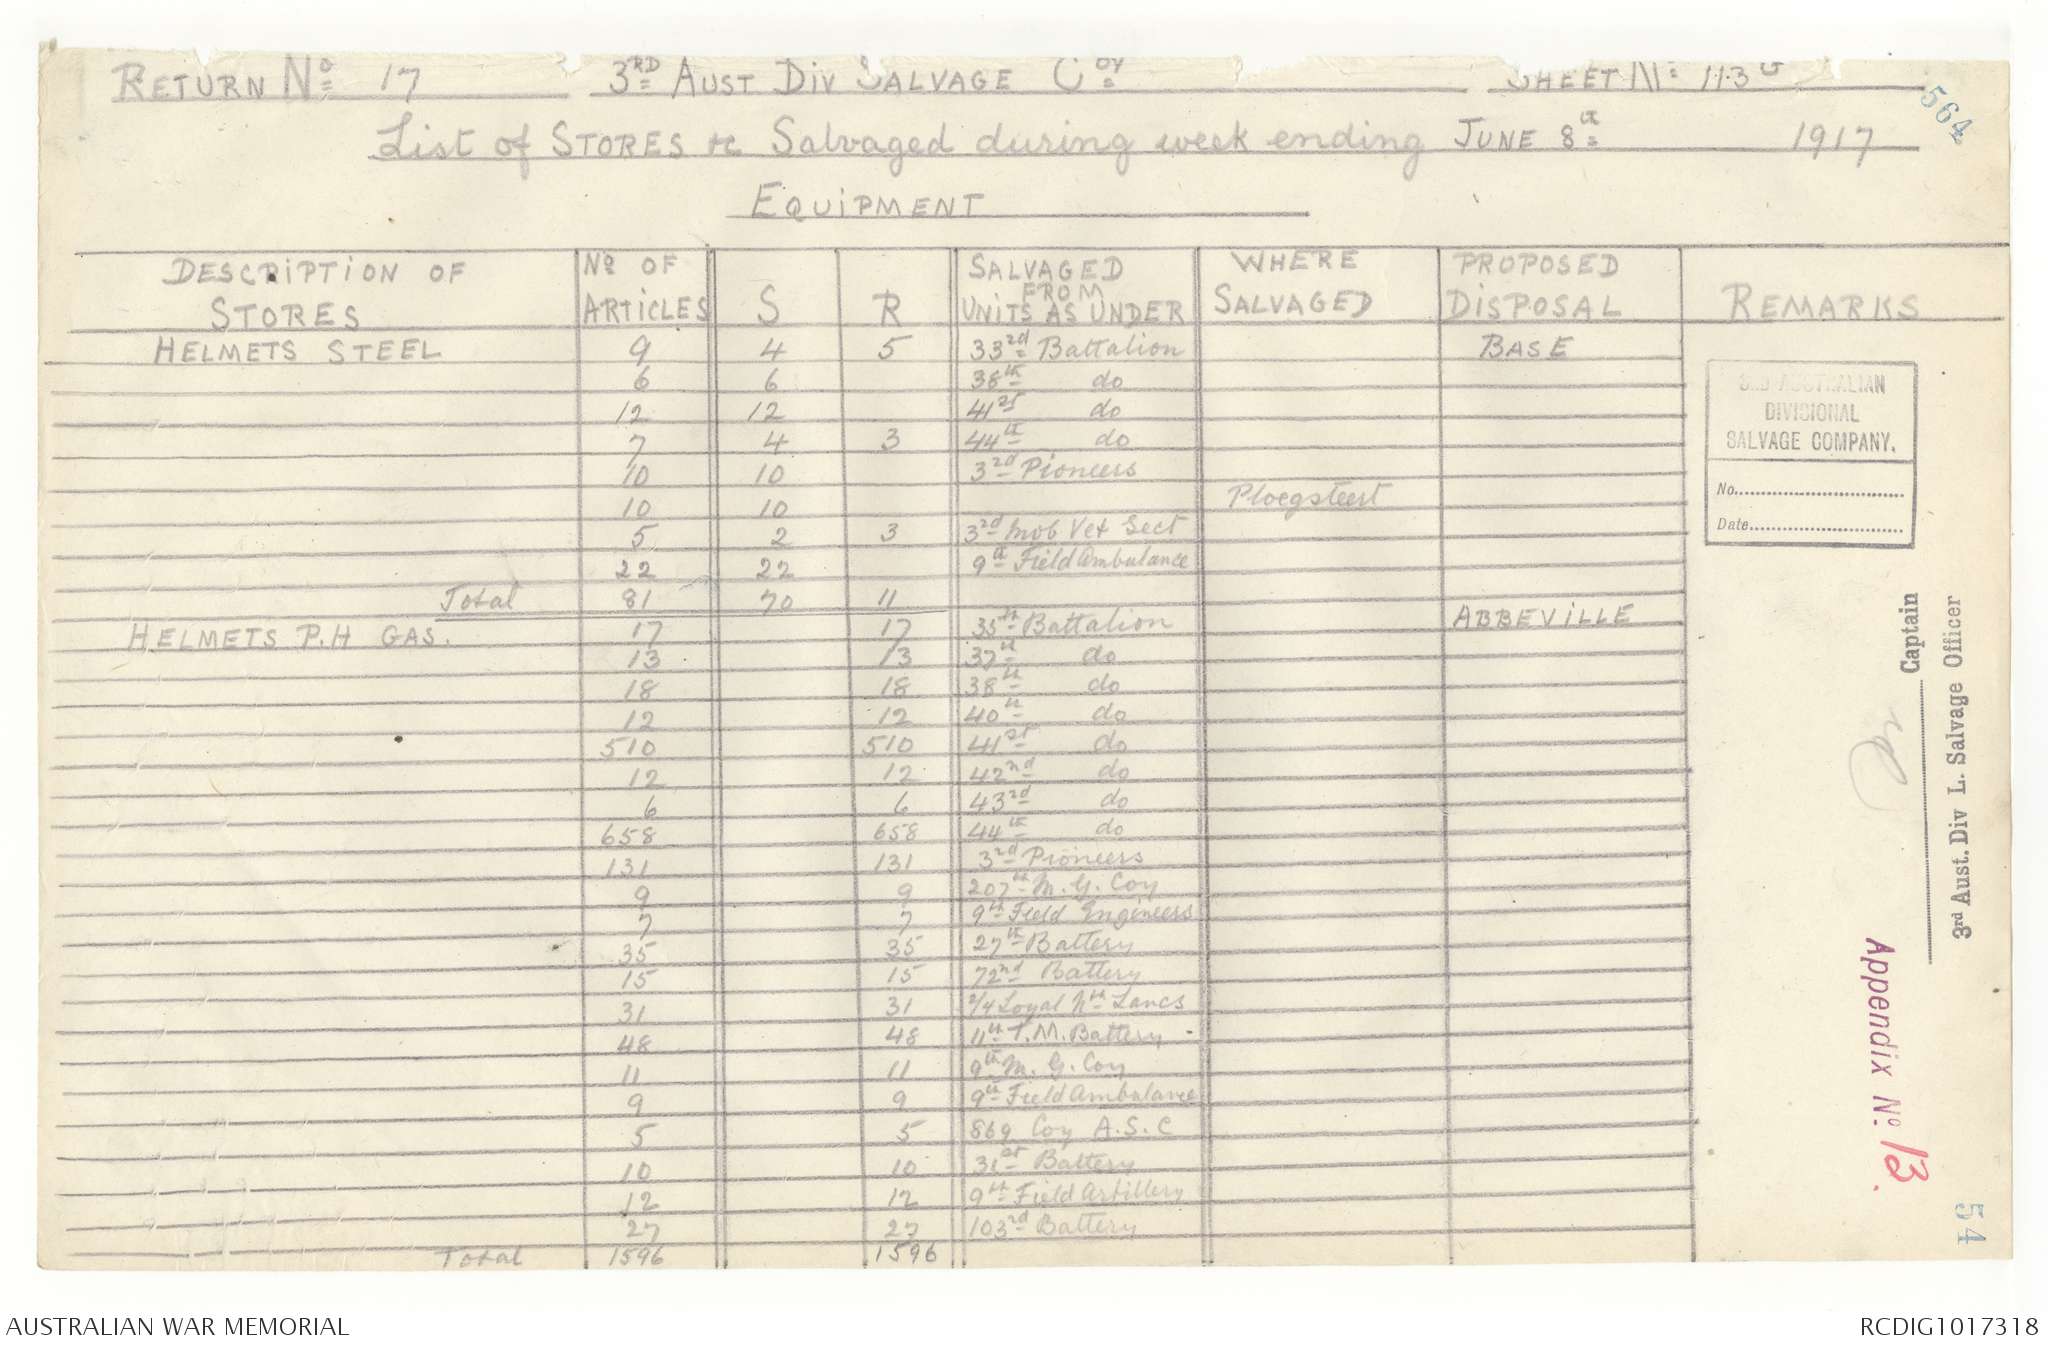 RETURN No 17 3RD AUST DIV SALVAGE COY SHEET No 113
564
List of STORES &c Salvaged during week ending JUNE 8th 1917
EQUIPMENT
DESCRIPTION OF STORES No OF ARTICLES S R SALVAGED FROM UNITS AS UNDER WHERE SALVAGED PROPOSED DISPOSAL REMARKS
HELMETS STEEL 9 4 5 33rd Battalion BASE
6 6 38th do
12 12 41st do
7 4 3 44th do
10 10 3rd Pioneers
10 10 Ploegsteert
5 2 3 3rd Mob Vet Sect
22 22 9th Field Ambulance
Total 81 70 11
HELMETS P.H GAS. 17 17 35th Battalion ABBEVILLE
13 13 37th do
18 18 38th do
12 12 40th do
510 510 41st do
12 12 42nd do
6 6 43rd do
658 658 44th do
131 131 3rd Pioneers
9 9 207th M.G. Coy
7 7 9th Field Engineers
35 35 27th Battery
15 15 72nd Battery
31 31 2/4 Loyal Nth Lancs
48 48 11th T.M. Battery
11 11 9th M.G. Coy
9 9 9th Field Ambulance
5 5 869 Coy A.S.C
10 10 31st Battery
12 12 9th Field Artillery
27 27 103rd Battery
Total 1596 1596
3RD AUSTRALIAN
DIVISIONAL
SALVAGE COMPANY.
No.
Date
Captain
3rd Aust. Div L. Salvage Officer
Appendix No. 13.
54
AUSTRALIAN WAR MEMORIAL
RCDIG1017318